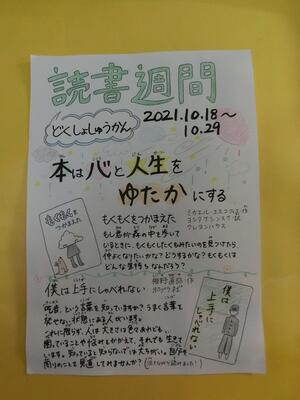 読書週間
どくしょしゅうかん
2021.10.18～
10.29
本は心と人生を
ゆたかにする
もくもくを
つかまえた
もくもくをつかまえた
ミカエル・エスコフィエ 作
クレヨンハウス
もし君が森の中を歩いて
いるときに、もくもくしたくもみたいのを見つけたら
仲よくなりたいかな?どうするかな?もくもくは
どんな気持ちなんだろう?
僕は上手にしゃべれない
椎野直弥 作
ポプラ社
吃音という言葉を知っていますか?うまく言葉を
話せない状態にある人がいます。
これに限らず、人は大きさは色々あれども
困っていることや悩みをかかえて、それでも生きて
います。知っているとしらないでは大ちがい。
見直してみませんか?
僕は
上手に
しゃべれない